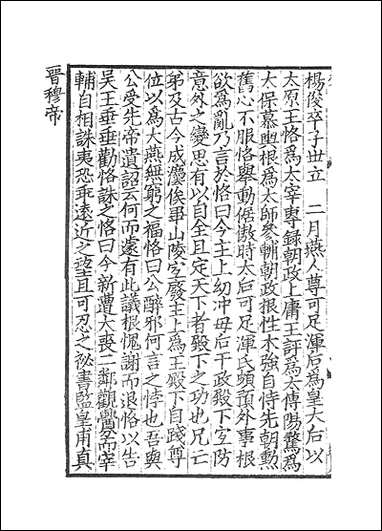 楊俊卒子世立　二月燕人尊可足渾后爲皇大后以
太原王恪爲太宰專録朝政上庸王評爲太傅陽騖爲
太保慕輿根爲太師參輔朝政根性木強自恃先朝勲
舊心不服恪舉動倨傲時太后可足渾氏頗預外事根
欲爲亂乃言於恪曰今主上幼沖母后干政殿下宜防
意外之變思有以自全且定天下者殿下之功也兄亡
弟及古今成灋俟畢山陵宜廢主上爲王殿下自踐尊
位以爲大燕無窮之福恪曰公醉邪何言之悖也吾與
公受先帝遺詔云何而遽有此議根愧謝而退恪以告
吳王垂垂勸恪誅之恪曰今新遭大喪二鄰觀釁而宰
輔自相誅夷恐乖遠近之望且可忍之祕書監皇甫真
晉穆帝